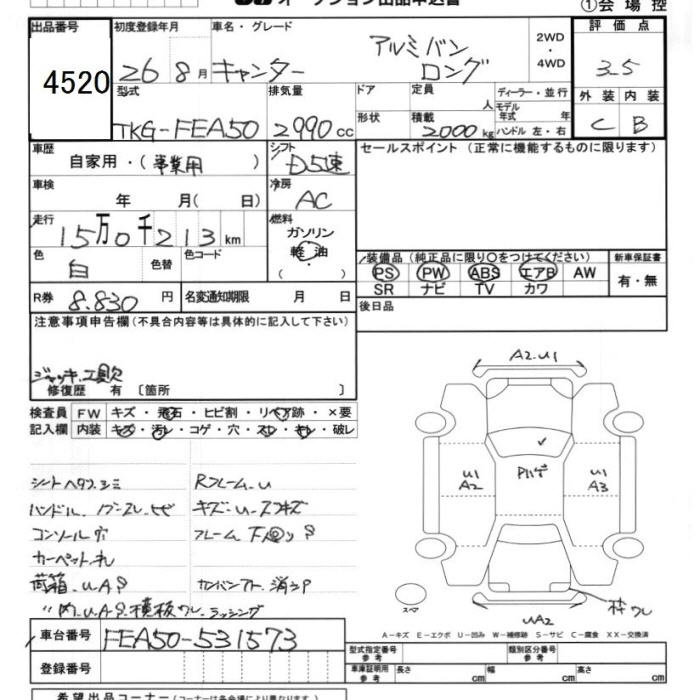 ①会場控
出品番号
4520
初度登録年月
26 8月
車名・グレード
キャンター
アルミバン
ロング
2WD
・
4WD
評価点
3.5
外装 内装
C B
型式
TKG-FEA50
排気量
2990cc
ドア
形状
定員
人
積載
2000kg
ディーラー・並行
モデル
年式 年
ハンドル 左・右
車歴
自家用・(事業用 )
シフト
D5速
セールスポイント (正常に機能するものに限ります)
車検
年 月( 日)
冷房
AC
走行
15万0千213km
燃料
ガソリン
軽油
( ・ )
色
白
色替
色コード
装備品 (純正品に限り○をつけてください)
PS PW ABS エアB AW
SR ナビ TV カワ
新車保証書
有・無
R券
8.830円
名変通知期限 月 日
後日品
注意事項申告欄(不具合内容等は具体的に記入して下さい)
ジャッキ.工具欠
修復歴 有 〔箇所 〕
検査員
記入欄
FW キズ・飛石・ヒビ割・リペア跡・×要
内装 キズ・汚レ・コゲ・穴・スレ・キレ・破レ
シートヘタリ.シミ
ハンドル.ノブ-スレ.ヒビ
コンソール穴
カーペット.キレ
荷箱.UAP
〃内.U.A.P.横板ワレ.ラッシング
Rフレーム-U
キズ-U-スリキズ
フレーム下回りP
カンバンアト.消シP
A2.U1
U1
A2
Pハゲ
U1
A3
スペア
UA2
枠ワレ
A-キズ E-エクボ U-凹み W-補修跡 S-サビ C-腐食 XX-交換済
車台番号
FEA50-531573
登録番号
型式指定番号
参考
類別区分番号
参考
車庫証明用
参考
長さ cm
幅 cm
高さ cm
希望出品コーナー(コーナーは各会場により異なります。)